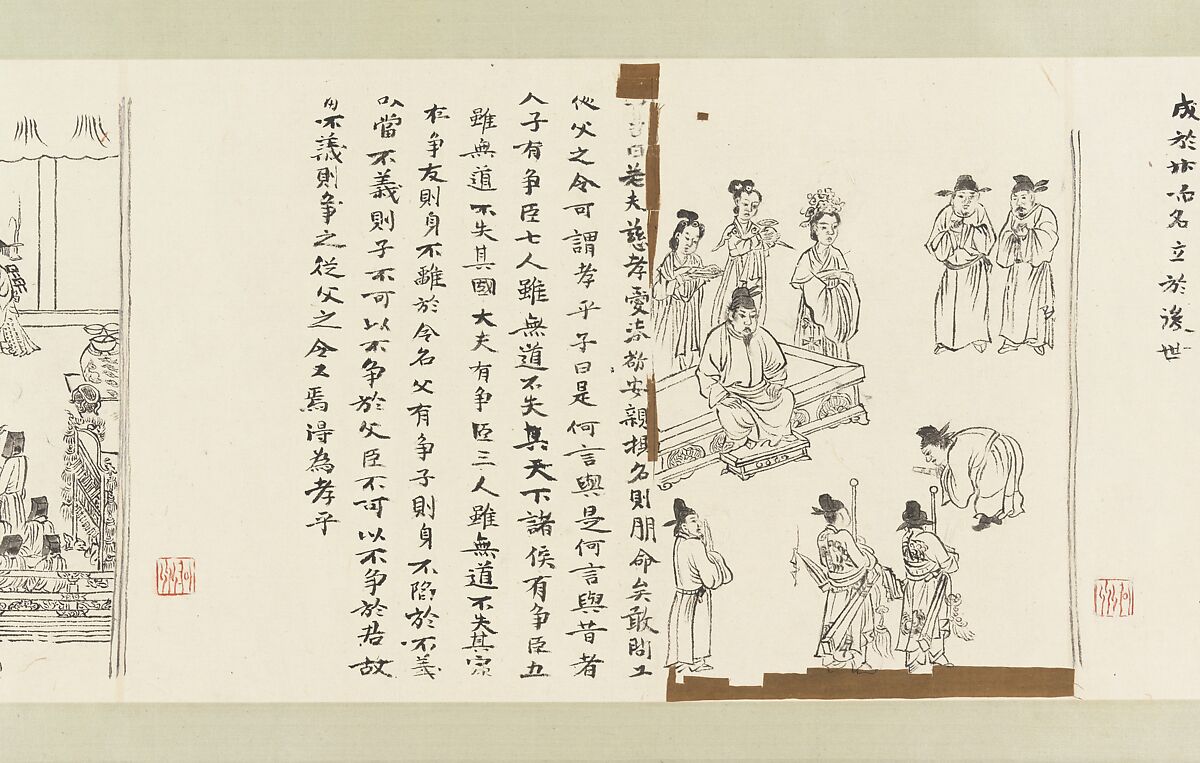 成於而名立於後世
曰若夫慈孝愛恭敬安親揚名則朋命矣敢問
父之令可謂孝乎子曰是何言與是何言與昔者
人子有争臣七人雖無道不失其天下諸侯有争臣五
雖無道不失其國大夫有争臣三人雖無道不失其家
有争友則身不離於令名父有争子則身不陷於不義
當不義則子不可以不争於父臣不可以不争於君故
不義則争之從父之令又焉得為孝乎